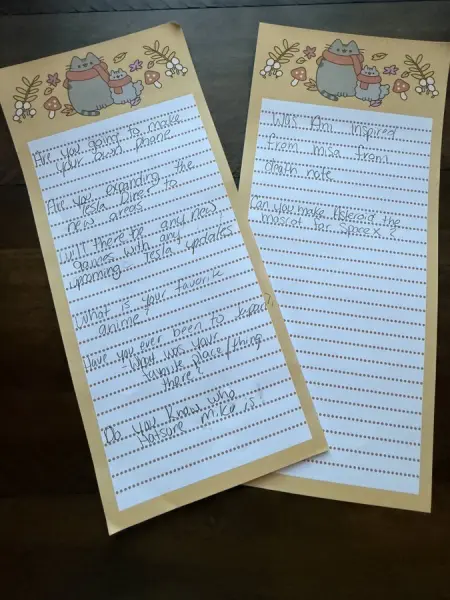 Are you going to make
your own phone
Are you expanding the
Tesla Diners to
new areas
Will there be any new
games with any
upcoming Tesla updates
What is your favorite
anime
Have you ever been to Japan?
-What was your
favorite place/thing
there?
Do you know who
Hatsune Miku is?
Was Ani inspired
from misa from
death note
Can you make Asteroid the
mascot for SpaceX?